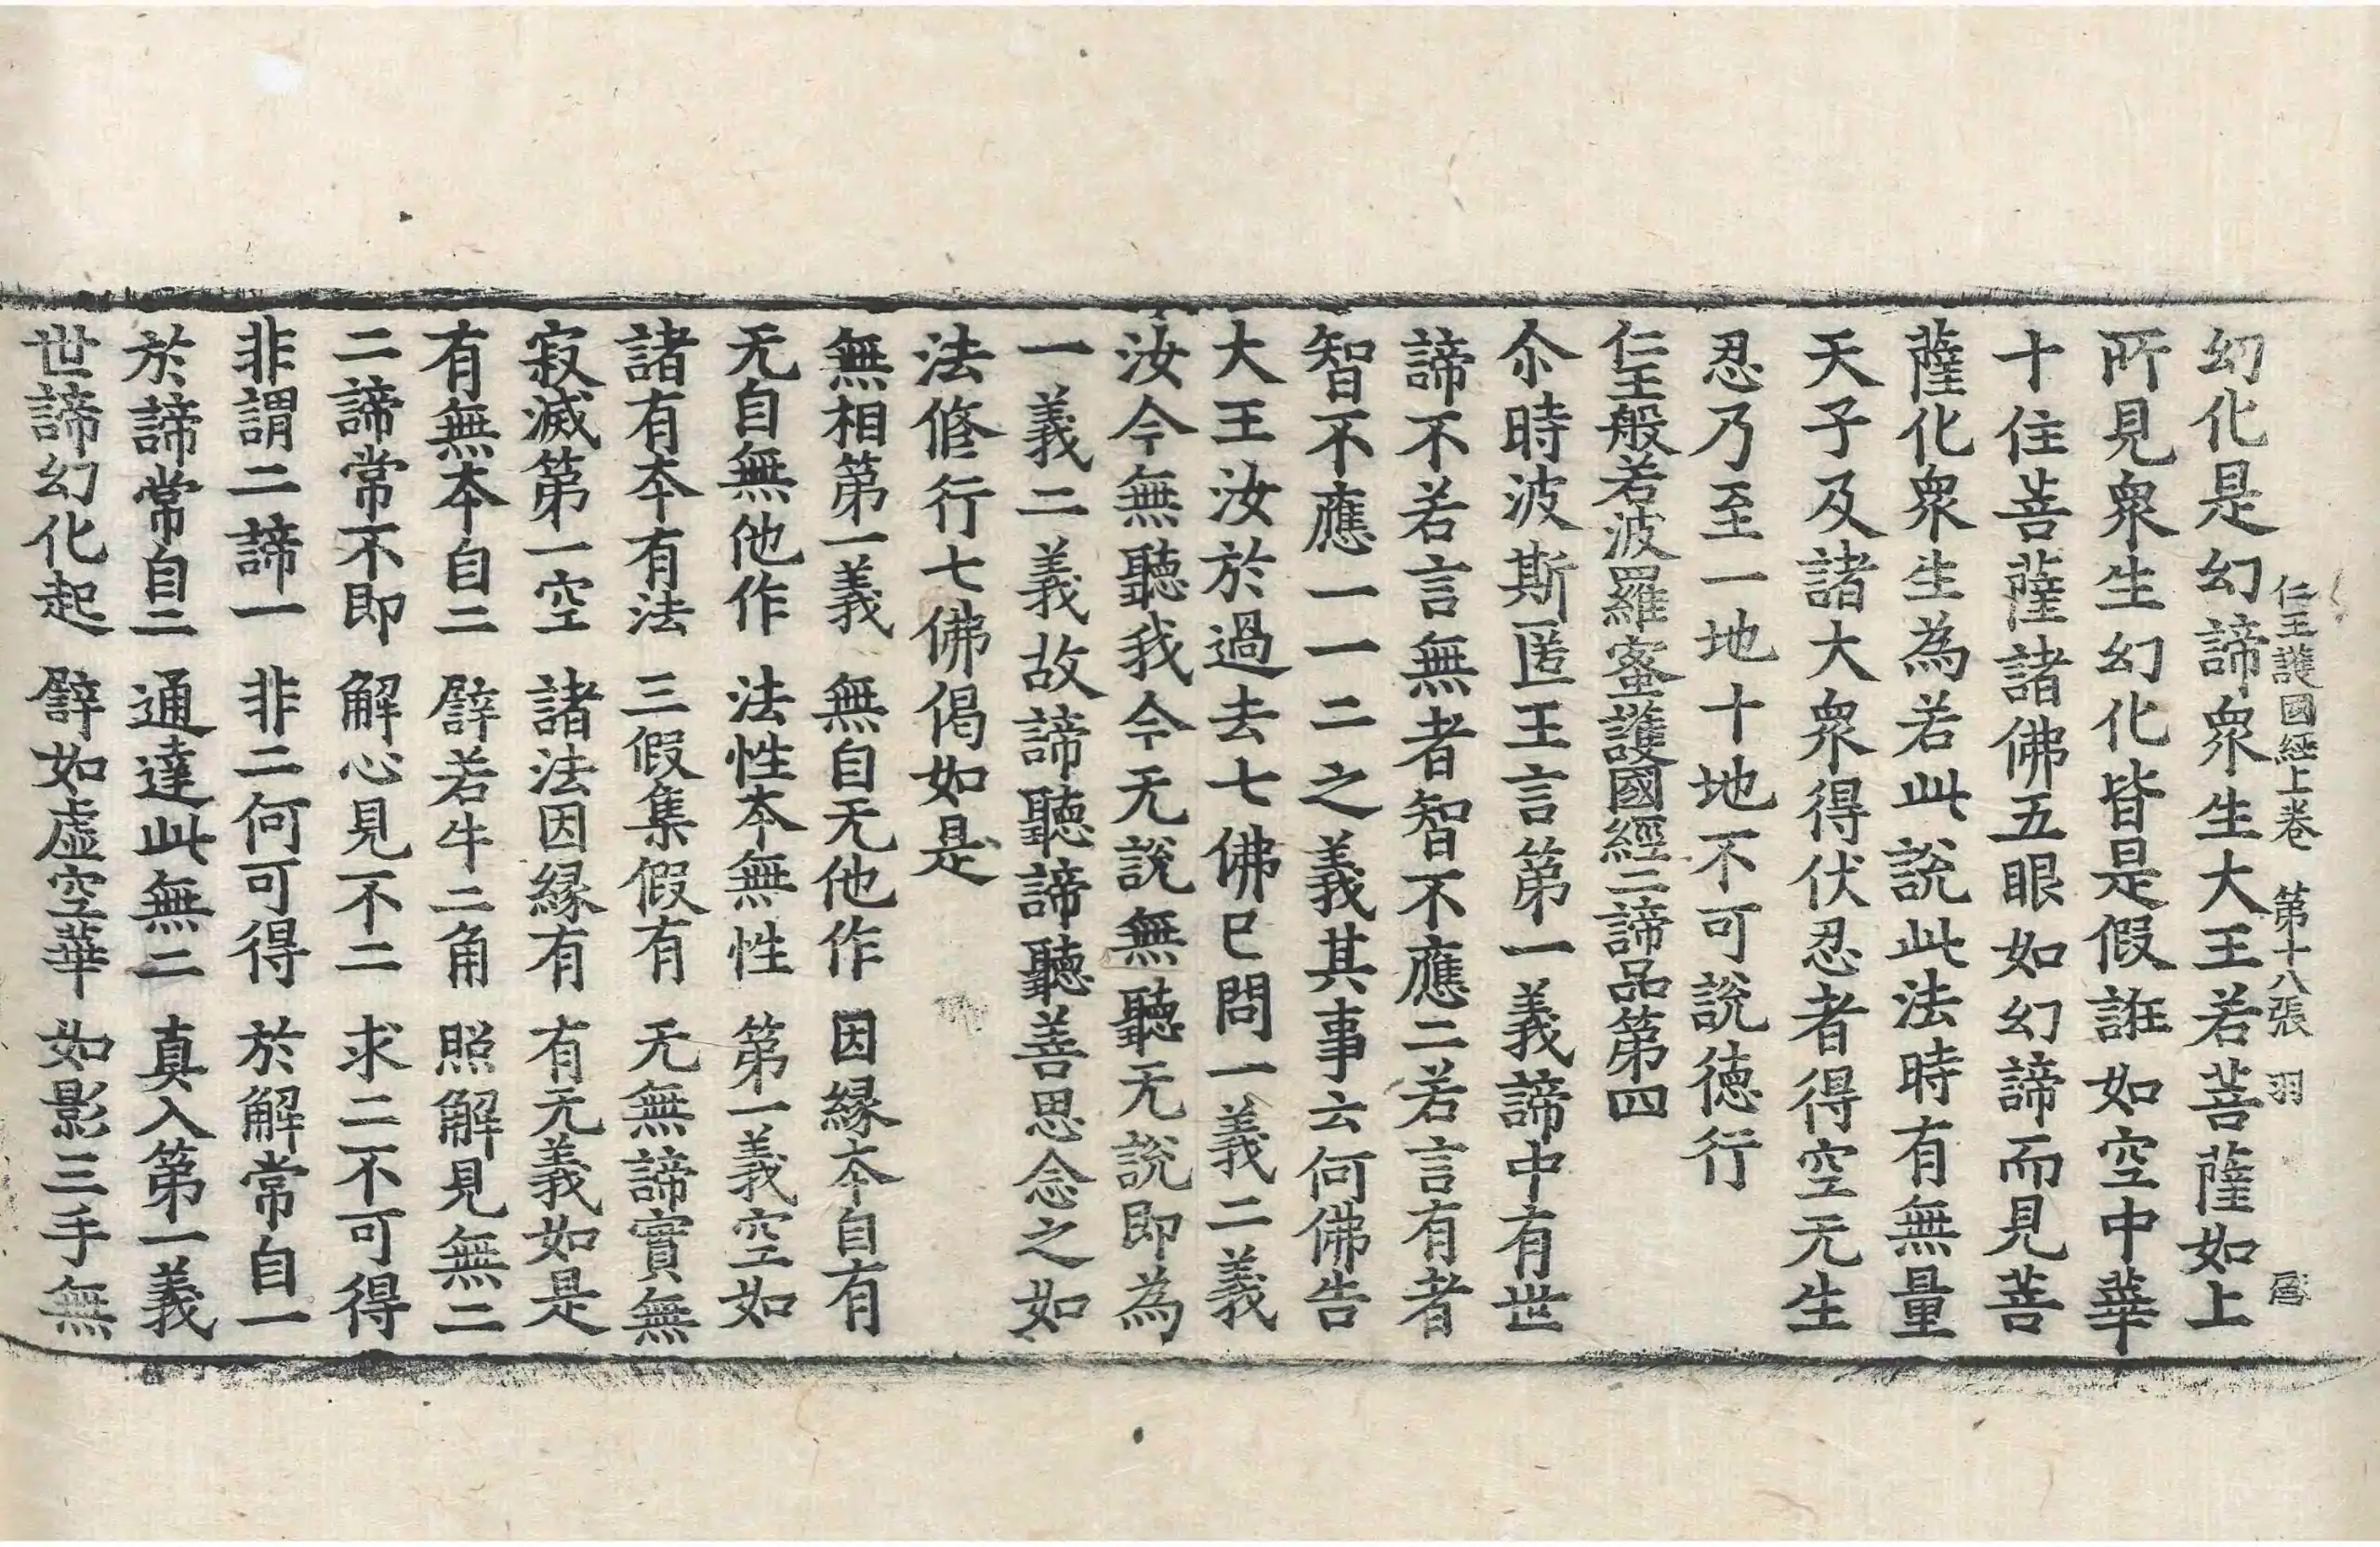 仁王護國經上卷　第十八張　羽
幻化是幻諦衆生大王若菩薩如上
所見衆生幻化皆是假誑如空中華
十住菩薩諸佛五眼如幻諦而見菩
薩化衆生為若此說此法時有無量
天子及諸大衆得伏忍者得空无生
忍乃至一地十地不可說德行
仁王般若波羅蜜護國經二諦品第四
尒時波斯匿王言第一義諦中有世
諦不若言無者智不應二若言有者
智不應一一二之義其事云何佛告
大王汝於過去七佛已問一義二義
汝今無聽我今无說無聽无說即為
一義二義故諦聽諦聽善思念之如
法修行七佛偈如是
無相第一義　無自无他作　因緣本自有
无自無他作　法性本無性　第一義空如
諸有本有法　三假集假有　无無諦實無
寂滅第一空　諸法因緣有　有无義如是
有無本自二　譬若牛二角　照解見無二
二諦常不即　解心見不二　求二不可得
非謂二諦一　非二何可得　於解常自一
於諦常自二　通達此無二　真入第一義
世諦幻化起　譬如虛空華　如影三手無